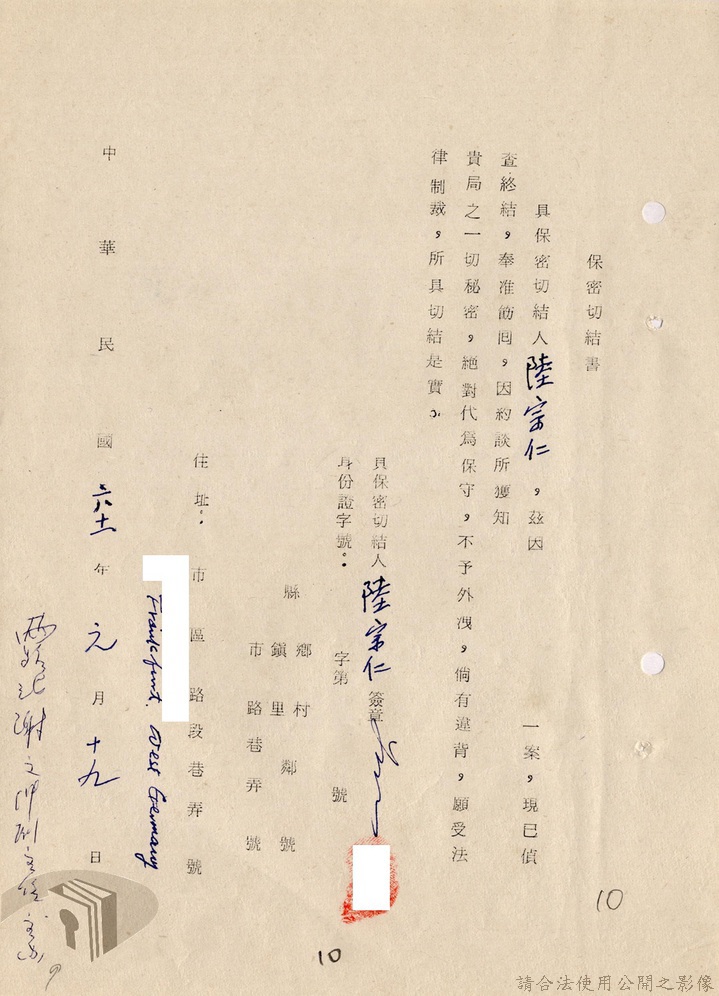 保密切結書
具保密切結人陸宗仁，茲因　一案，現已偵
查終結，奉准飭回，因約談所獲知
貴局之一切秘密，絕對代為保守，不予外洩，倘有違背，願受法
律制裁，所具切結是實。
具保密切結人陸宗仁簽章
身份證字號：　字第　號
縣　鄉鎮　村里　鄰　號
市　路巷弄　號
住址：　市區路段巷弄號
Frankfurt. West Germany
中華民國六十二年元月十九日
10
10
請合法使用公開之影像